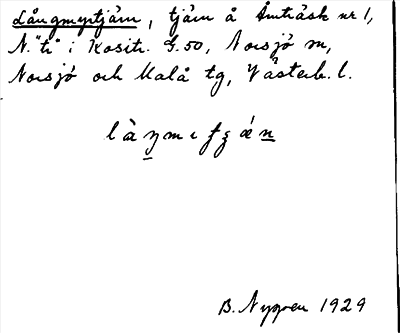 Långmyrtjärn, tjärn å Åmträsk nr 1,
N. "ti" i Kositr. G.50, Norsjö sn,
Norsjö och Malå tg, Västerb. l.
B. Nygren 1929